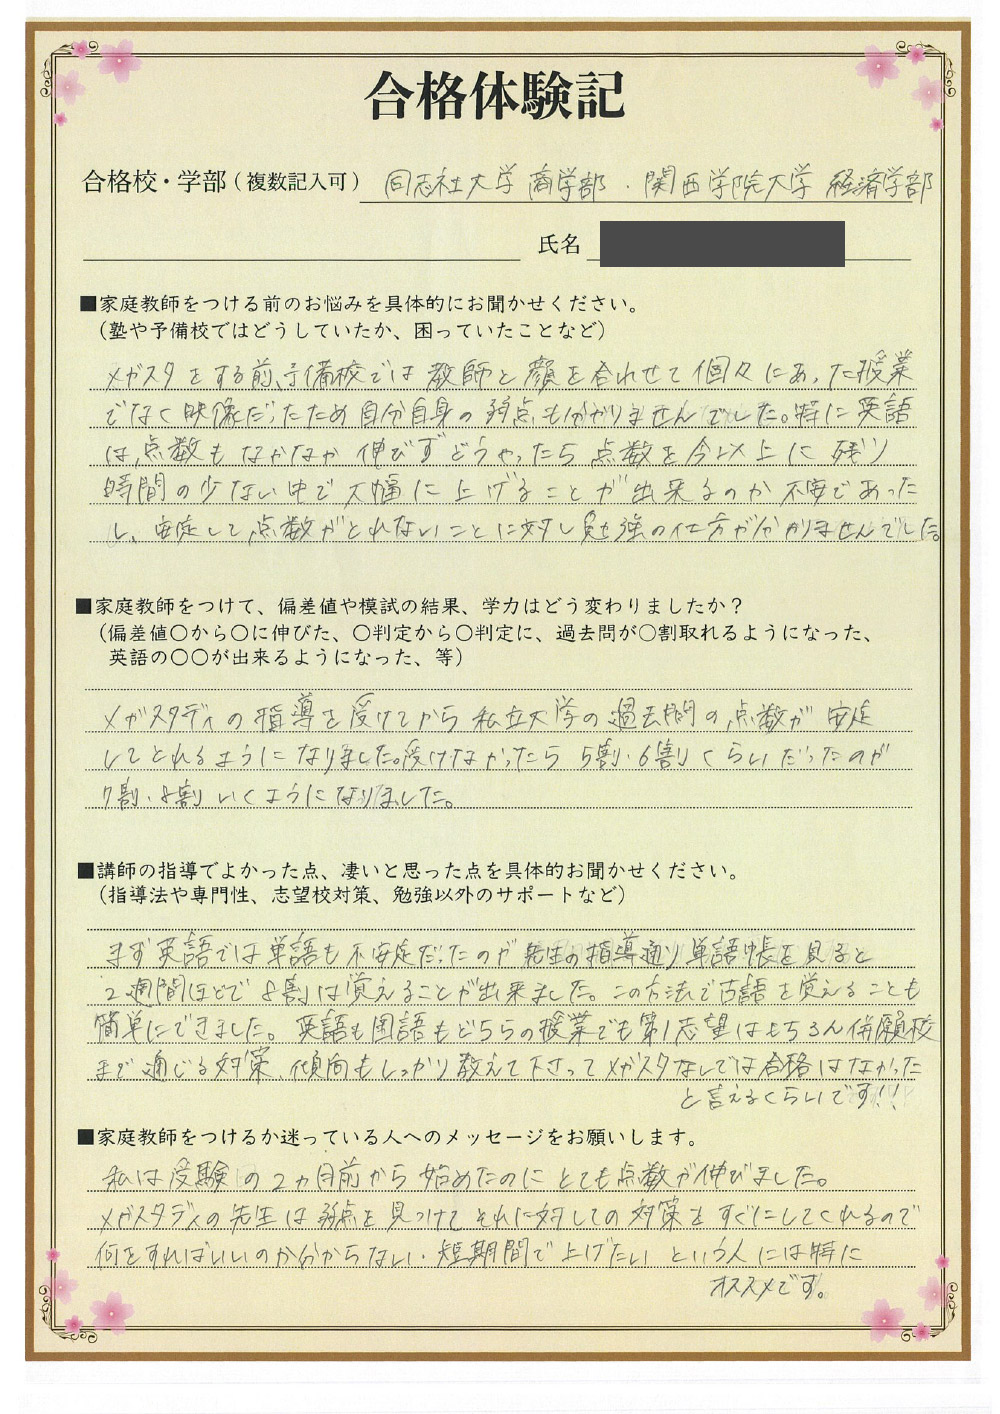 合格体験記
合格校・学部(複数記入可) 同志社大学 商学部 ・ 関西学院大学 経済学部
氏名
■家庭教師をつける前のお悩みを具体的にお聞かせください。
(塾や予備校ではどうしていたか、困っていたことなど)
メガスタをする前、予備校では教師と顔を合わせて個々にあった授業
でなく映像だったため自分自身の弱点も分かりませんでした。特に英語
は、点数もなかなか伸びずどうやったら点数を今以上に残り
時間の少ない中で大幅に上げることが出来るのか不安であった
し、安定して点数がとれないことに対し勉強の仕方が分かりませんでした。
■家庭教師をつけて、偏差値や模試の結果、学力はどう変わりましたか?
(偏差値〇から〇に伸びた、〇判定から〇判定に、過去問が〇割取れるようになった、
英語の〇〇が出来るようになった、等)
メガスタディの指導を受けてから私立大学の過去問の点数が安定
してとれるようになりました。受けなかったら5割・6割くらいだったのが
7割・8割いくようになりました。
■講師の指導でよかった点、凄いと思った点を具体的お聞かせください。
(指導法や専門性、志望校対策、勉強以外のサポートなど)
まず英語では単語も不安定だったのが先生の指導通り単語帳を見ると
2週間ほどで8割は覚えることが出来ました。この方法で古語を覚えることも
簡単にできました。英語も国語もどちらの授業でも第1志望はもちろん併願校
まで通じる対策、傾向もしっかり教えて下さってメガスタなしでは合格はなかった
と言えるくらいです!!
■家庭教師をつけるか迷っている人へのメッセージをお願いします。
私は受験の2ヵ月前から始めたのにとても点数が伸びました。
メガスタディの先生は弱点を見つけてそれに対しての対策をすぐにしてくれるので
何をすればいいのか分からない・短期間で上げたいという人には特に
オススメです。